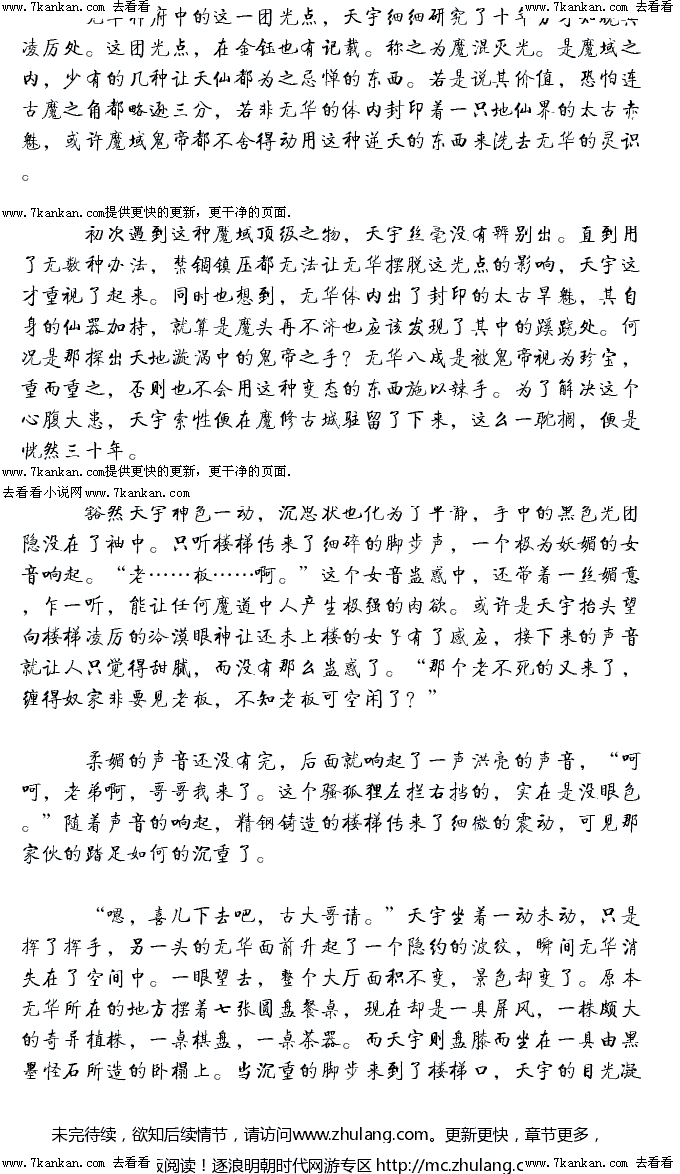 www.7kankan.com 去看看 www.7kankan.com 去看看
凌厉处。这团光点，在金钰也有记载。称之为魔混灭光。是魔域之
内，少有的几种让天仙都为之忌惮的东西。若是说其价值，恐怕连
古魔之角都略逊三分，若非无华的体内封印着一只地仙界的太古赤
魃，或许魔域鬼帝都不舍得动用这种逆天的东西来洗去无华的灵识
。
www.7kankan.com提供更快的更新，更干净的页面.
初次遇到这种魔域顶级之物，天宇丝毫没有辨别出。直到用
了无数种办法，禁锢镇压都无法让无华摆脱这光点的影响，天宇这
才重视了起来。同时也想到，无华体内出了封印的太古旱魃，其自
身的仙器加持，就算是魔头再不济也应该发现了其中的蹊跷处。何
况是那探出天地漩涡中的鬼帝之手？无华八成是被鬼帝视为珍宝，
重而重之，否则也不会用这种变态的东西施以辣手。为了解决这个
心腹大患，天宇索性便在魔修古城驻留了下来，这么一耽搁，便是
恍然三十年。
www.7kankan.com提供更快的更新，更干净的页面.
去看看小说网www.7kankan.com
豁然天宇神色一动，沉思状也化为了平静，手中的黑色光团
隐没在了袖中。只听楼梯传来了细碎的脚步声，一个极为妖媚的女
音响起。“老……板……啊。”这个女音蛊惑中，还带着一丝媚意
，乍一听，能让任何魔道中人产生极强的肉欲。或许是天宇抬头望
向楼梯凌厉的冷漠眼神让还未上楼的女子有了感应，接下来的声音
就让人只觉得甜腻，而没有那么蛊惑了。“那个老不死的又来了，
缠得奴家非要见老板，不知老板可空闲了？”
柔媚的声音还没有完，后面就响起了一声洪亮的声音，“呵
呵，老弟啊，哥哥我来了。这个骚狐狸左拦右挡的，实在是没眼色
。”随着声音的响起，精钢铸造的楼梯传来了细微的震动，可见那
家伙的踏足如何的沉重了。
“嗯，喜儿下去吧，古大哥请。”天宇坐着一动未动，只是
挥了挥手，另一头的无华面前升起了一个隐约的波纹，瞬间无华消
失在了空间中。一眼望去，整个大厅面积不变，景色却变了。原本
无华所在的地方摆着七张圆盘餐桌，现在却是一具屏风，一株颇大
的奇异植株，一桌棋盘，一桌茶器。而天宇则盘膝而坐在一具由黑
墨怪石所造的卧榻上。当沉重的脚步来到了楼梯口，天宇的目光凝
未完待续，欲知后续情节，请访问www.zhulang.com。更新更快，章节更多，
www.7kankan.com 去看看 阅读！逐浪明朝时代网游专区 http://mc.zhulang.com www.7kankan.com 去看看